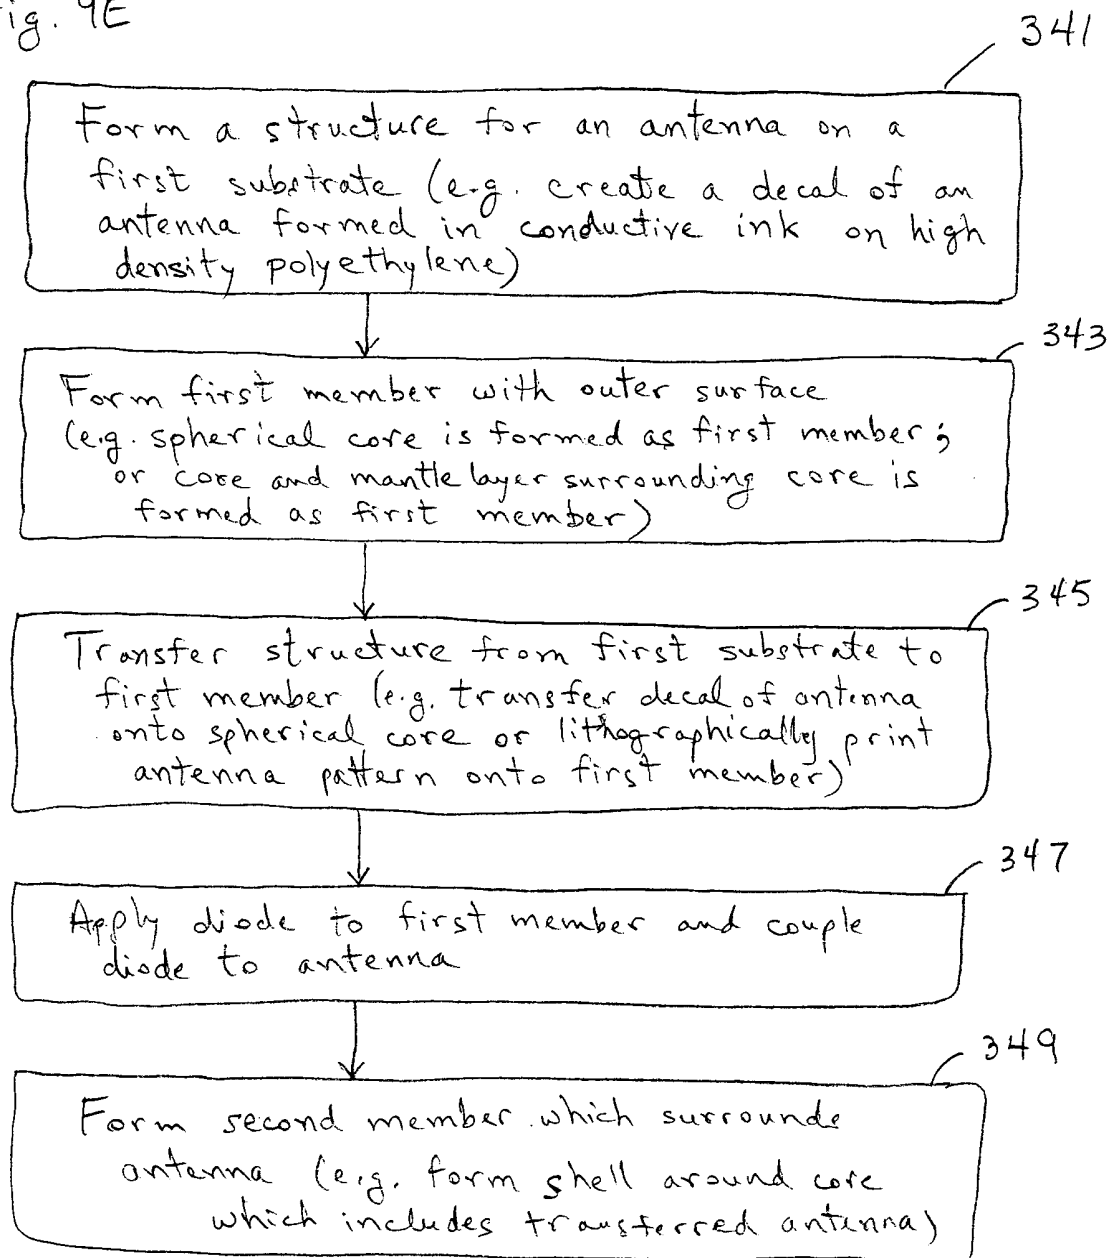 ig. 9E
341
Form a structure for an antenna on a
first substrate (e.g. create a decal of an
antenna formed in conductive ink on high
density polyethylene)
343
Form first member with outer surface
(e.g. spherical core is formed as first member;
or core and mantle layer surrounding core is
formed as first member)
345
Transfer structure from first substrate to
first member (e.g. transfer decal of antenna
onto spherical core or lithographically print
antenna pattern onto first member)
347
Apply diode to first member and couple
diode to antenna
349
Form second member which surrounds
antenna (e.g. form shell around core
which includes transferred antenna)